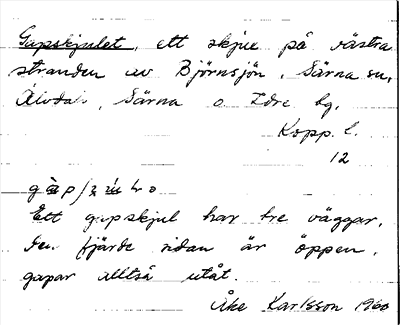 Gapskjulet, ett skjul på västra
stranden av Björnsjön, Särna sn,
Älvdals, Särna o Idre tg,
Kopp. l.
12
Ett gapskjul har tre väggar,
den fjärde sidan är öppen,
gapar alltså utåt.
Åke Karlsson 1960